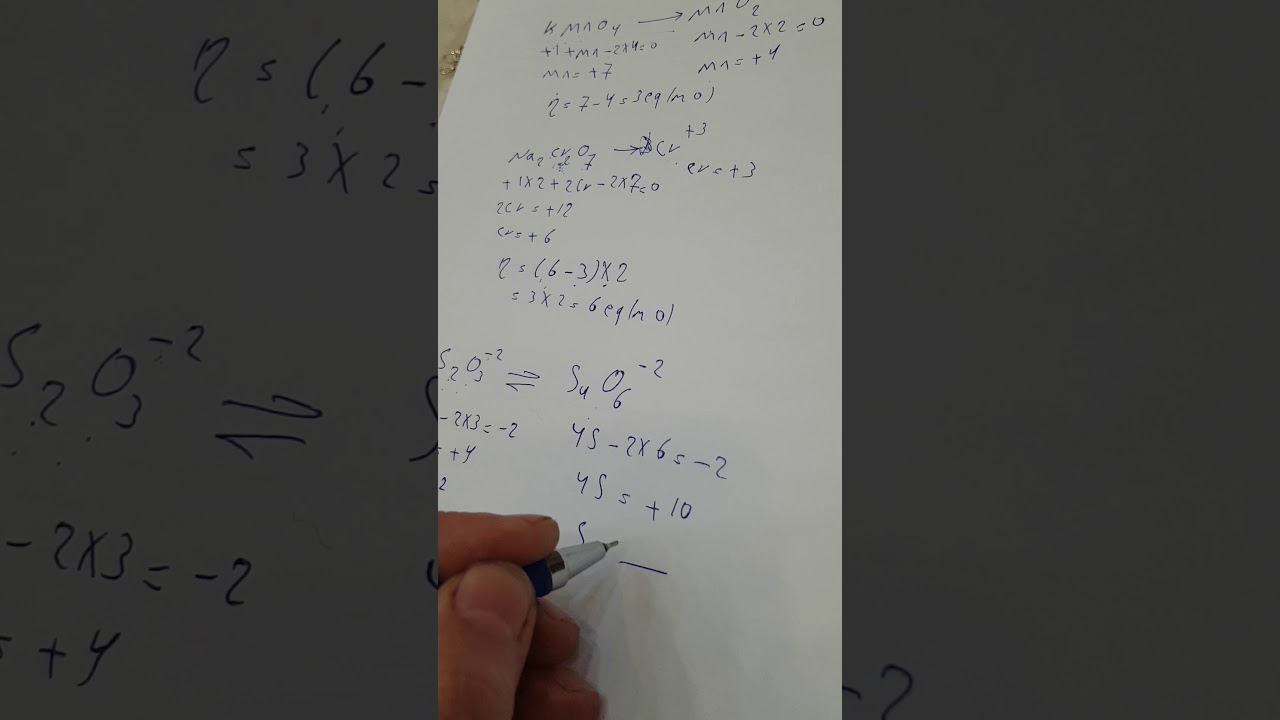 KMnO4 → MnO2
+1+Mn-2x4=0 Mn-2x2=0
Mn=+7 Mn=+4
η=7-4=3eq/mol
Na2Cr2O7 → Cr+3
+1x2+2Cr-2x7=0 Cr=+3
2Cr=+12
Cr=+6
η=(6-3)x2
=3x2=6eq/mol
S2O3-2 ⇌ S4O6-2
-2x3=-2 4S-2x6=-2
+4 4S=+10
2 S